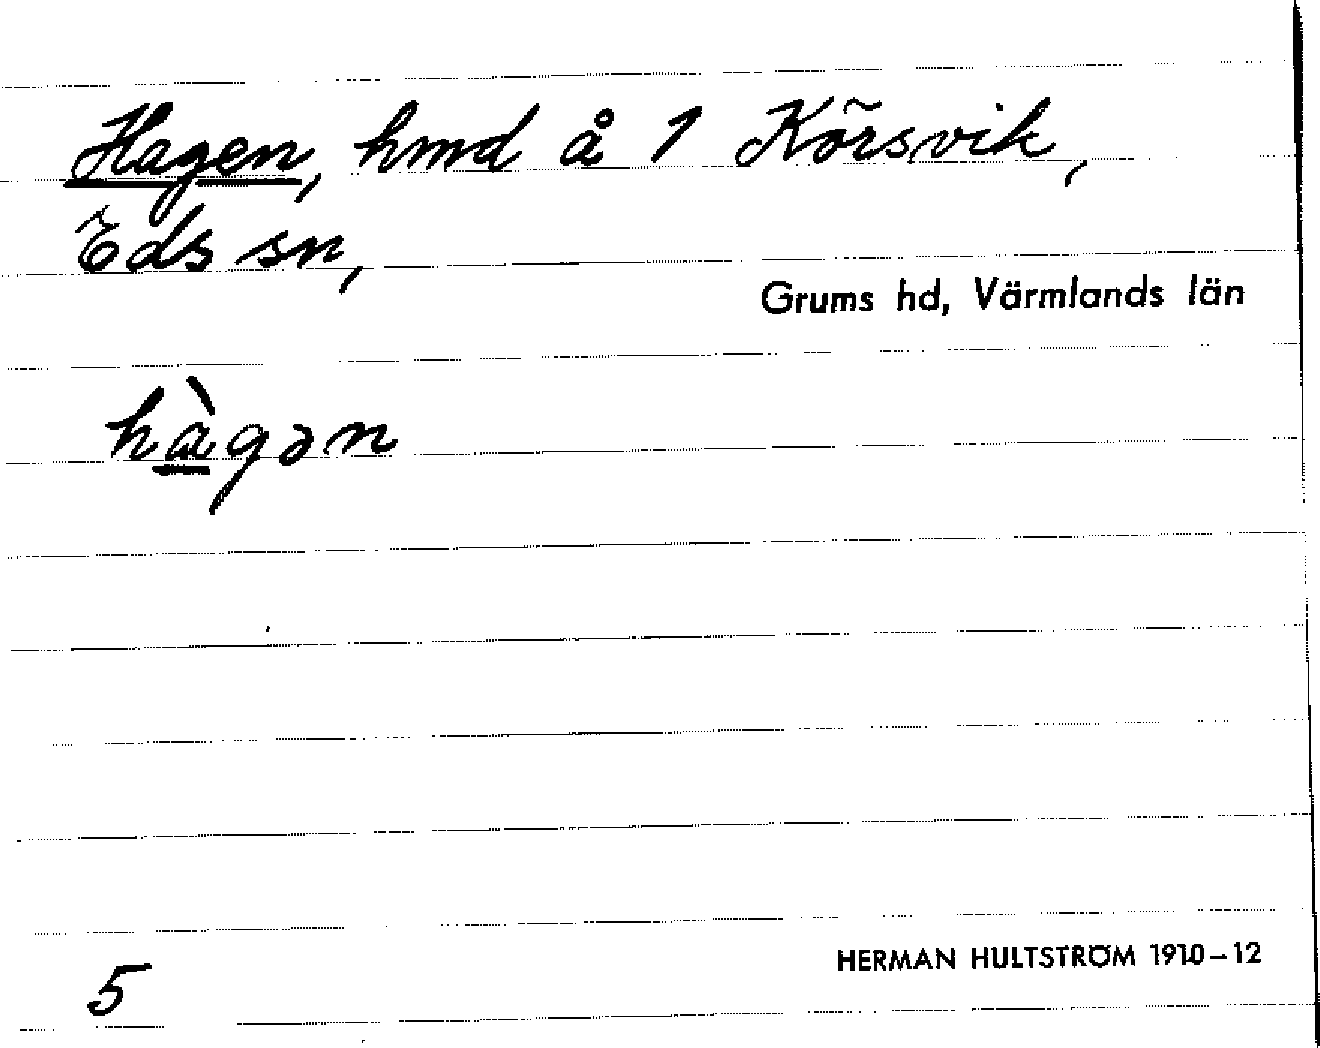 Hagen, hmd å 1 Körsvik,
Eds sn,
Grums hd, Värmlands län
hàgən
5
HERMAN HULTSTRÖM 1910–12